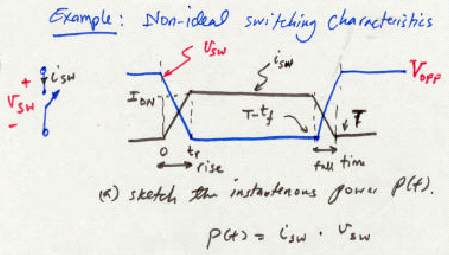 Example: Non-ideal switching characteristics
υsw
isw
VOFF
+ isw
υsw
-
ION
T-tf
T
0 tr
rise
fall time
(a) sketch the instantenous power p(t).
p(t) = isw · υsw